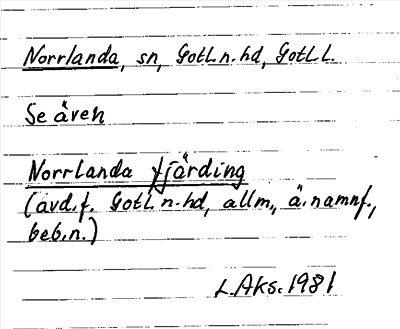 Norrlanda, sn, Gotl. n. hd, Gotl. l.
Se även
Norrlanda fjärding
(avd. f. Gotl. n. hd, allm., ä. namnf.,
beb. n.)
L. Aks. 1981